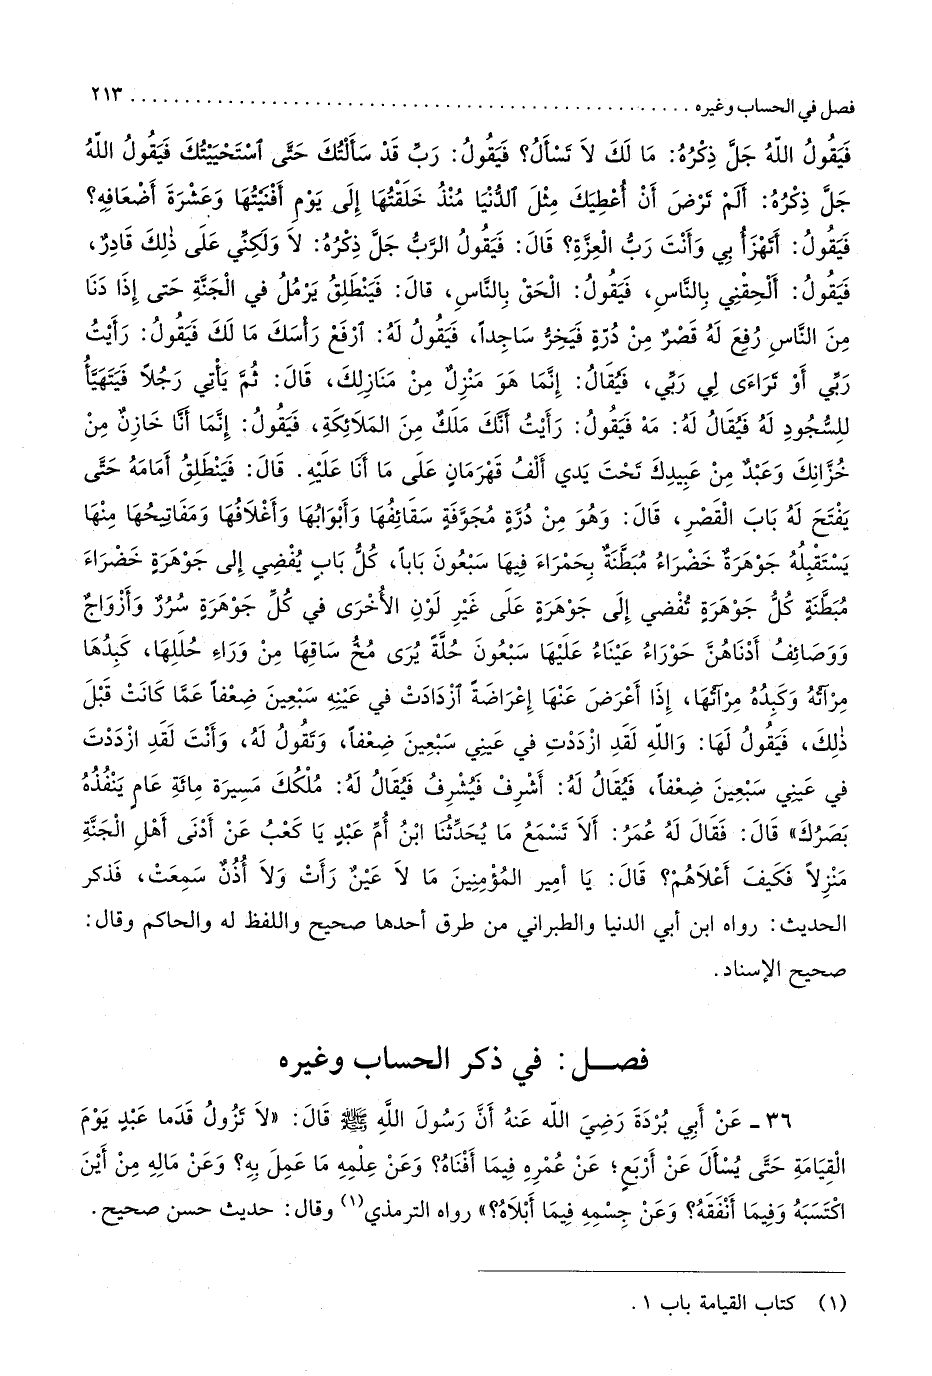 فصل في الحساب وغيره ........................................................ ٢١٣
فَيَقُولُ اللّهُ جَلَّ ذِكْرُهُ: مَا لَكَ لاَ تَسْأَلُ؟ فَيَقُولُ: رَبِّ قَدْ سَأَلْتُكَ حَتَّى ٱسْتَحْيَيْتُكَ فَيَقُولُ اللّهُ
جَلَّ ذِكْرُهُ: أَلَمْ تَرْضَ أَنْ أُعْطِيَكَ مِثْلَ الدُّنْيَا مُنْذُ خَلَقْتُهَا إِلَى يَوْمِ أَفْنَيْتُهَا وَعَشْرَةَ أَضْعَافِهِ؟
فَيَقُولُ: أَتَهْزَأُ بِي وَأَنْتَ رَبُّ الْعِزَّةِ؟ قَالَ: فَيَقُولُ الرَّبُّ جَلَّ ذِكْرُهُ: لاَ وَلَكِنِّي عَلَى ذٰلِكَ قَادِرٌ،
فَيَقُولُ: أَلْحِقْنِي بِالنَّاسِ، فَيَقُولُ: الْحَقْ بِالنَّاسِ، قالَ: فَيَنْطَلِقُ يَرْمُلُ في الْجَنَّةِ حَتى إِذَا دَنَا
مِنَ النَّاسِ رُفِعَ لَهُ قَصْرٌ مِنْ دُرَّةٍ فَيَخِرُّ سَاجِداً، فَيَقُولُ لَهُ: ٱرْفَعْ رَأْسَكَ مَا لَكَ فَيَقُولُ: رَأَيْتُ
رَبِّي أَوْ تَرَاءَى لِي رَبِّي، فَيُقَالُ: إِنَّمَا هَوَ مَنْزِلٌ مِنْ مَنَازِلِكَ، قَالَ: ثُمَّ يَأْتِي رَجُلاً فَيَتَهَيَّأُ
للِسُّجُودِ لَهُ فَيُقَالُ لَهُ: مَهْ فَيَقُولُ: رَأَيْتُ أَنَّكَ مَلَكٌ مِنَ المَلاَئِكَةِ، فَيَقُولُ: إِنَّمَا أَنَا خَازِنٌ مِنْ
خُزَّانِكَ وَعَبْدٌ مِنْ عَبِيدِكَ تَحْتَ يَدِي أَلْفُ قَهْرَمَانٍ عَلَى مَا أَنَا عَلَيْهِ. قَالَ: فَيَنْطَلِقُ أَمَامَهُ حَتَّى
يَفْتَحَ لَهُ بَابَ القَصْرِ، قَالَ: وَهُوَ مِنْ دُرَّةٍ مُجَوَّفَةٍ سَقَائِفُهَا وَأَبْوَابُهَا وَأَغْلاَفُهَا وَمَفَاتِيحُهَا مِنْهَا
يَسْتَقْبِلُهُ جَوْهَرَةٌ خَضْرَاءُ مُبَطَّنَةٌ بِحَمْرَاءَ فِيهَا سَبْعُونَ بَاباً، كُلُّ بَابٍ يُفْضِي إلى جَوْهَرَةٍ خَضْرَاءَ
مُبَطَّنَةٍ كُلُّ جَوْهَرَةٍ تُفْضي إِلَى جَوْهَرَةٍ عَلَى غَيْرِ لَوْنِ الأُخْرَى في كُلِّ جَوْهَرَةٍ سُرُرٌ وَأَزْوَاجٌ
وَوَصَائِفُ أَدْنَاهُنَّ حَوْرَاءُ عَيْنَاءُ عَلَيْهَا سَبْعُونَ حُلَّةً يُرَى مُخُّ سَاقِهَا مِنْ وَرَاءِ حُلَلِهَا، كَبِدُهَا
مِرْآتُهُ وَكَبِدُهُ مِرْآتُهَا، إِذَا أَعْرَضَ عَنْهَا إِعْرَاضَةً ٱزْدَادَتْ في عَيْنِهِ سَبْعِينَ ضِعْفاً عَمَّا كَانَتْ قَبْلَ
ذٰلِكَ، فَيَقُولُ لَهَا: وَاللّهِ لَقَدِ ازْدَدْتِ في عَيني سَبْعِينَ ضِعْفاً، وَتَقُولُ لَهُ، وَأَنْتَ لَقَدِ ازْدَدْتَ
في عَيْنِي سَبْعِينَ ضِعْفاً، فَيُقَالُ لَهُ: أَشْرِفْ فَيُشْرِفُ فَيُقَالُ لَهُ: مُلْكُكَ مَسِيرَةَ مِائَةِ عَامٍ يَنْفُذُهُ
بَصَرُكَ» قَالَ: فَقَالَ لَهُ عُمَرُ: أَلاَ تَسْمَعُ مَا يُحَدِّثُنَا ابْنُ أُمِّ عَبْدٍ يَا كَعْبُ عَنْ أَدْنَى أَهْلِ الْجَنَّةِ
مَنْزِلاً فَكَيفَ أَعْلاَهُمْ؟ قَالَ: يَا أمِير المُؤْمِنِينَ مَا لاَ عَيْنٌ رَأَتْ وَلاَ أُذُنٌ سَمِعَتْ، فَذكر
الحديث: رواه ابن أبي الدنيا والطبراني من طرق أحدها صحيح واللفظ له والحاكم وقال:
صحيح الإسناد.
فصل: في ذكر الحساب وغيره
٣٦ـ عَنْ أَبِي بُرْدَةَ رَضِيَ اللّه عَنهُ أَنَّ رَسُولَ اللّهِ ﷺ قَالَ: «لاَ تَزُولُ قَدَما عَبْدٍ يَوْمَ
الْقِيَامَةِ حَتَّى يُسْأَلَ عَنْ أَرْبَعٍ؛ عَنْ عُمْرِهِ فِيمَا أَفْنَاهُ؟ وَعَنْ عِلْمِهِ مَا عَمِلَ بِهِ؟ وَعَنْ مَالِهِ مِنْ أَيْنَ
اكْتَسَبَهُ وَفِيمَا أَنْفَقَهُ؟ وَعَنْ جِسْمِهِ فِيمَا أَبْلاَهُ؟» رواه الترمذي(١) وقال: حديث حسن صحيح.
(١) كتاب القيامة باب ١.